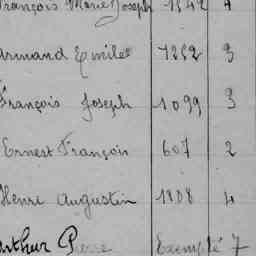 François Marie Joseph 1542 4
Armand Emile 1252 3
François Joseph 1099 3
Ernest François 607 2
Henri Augustin 1808 4
Arthur Pierre Exempté 7